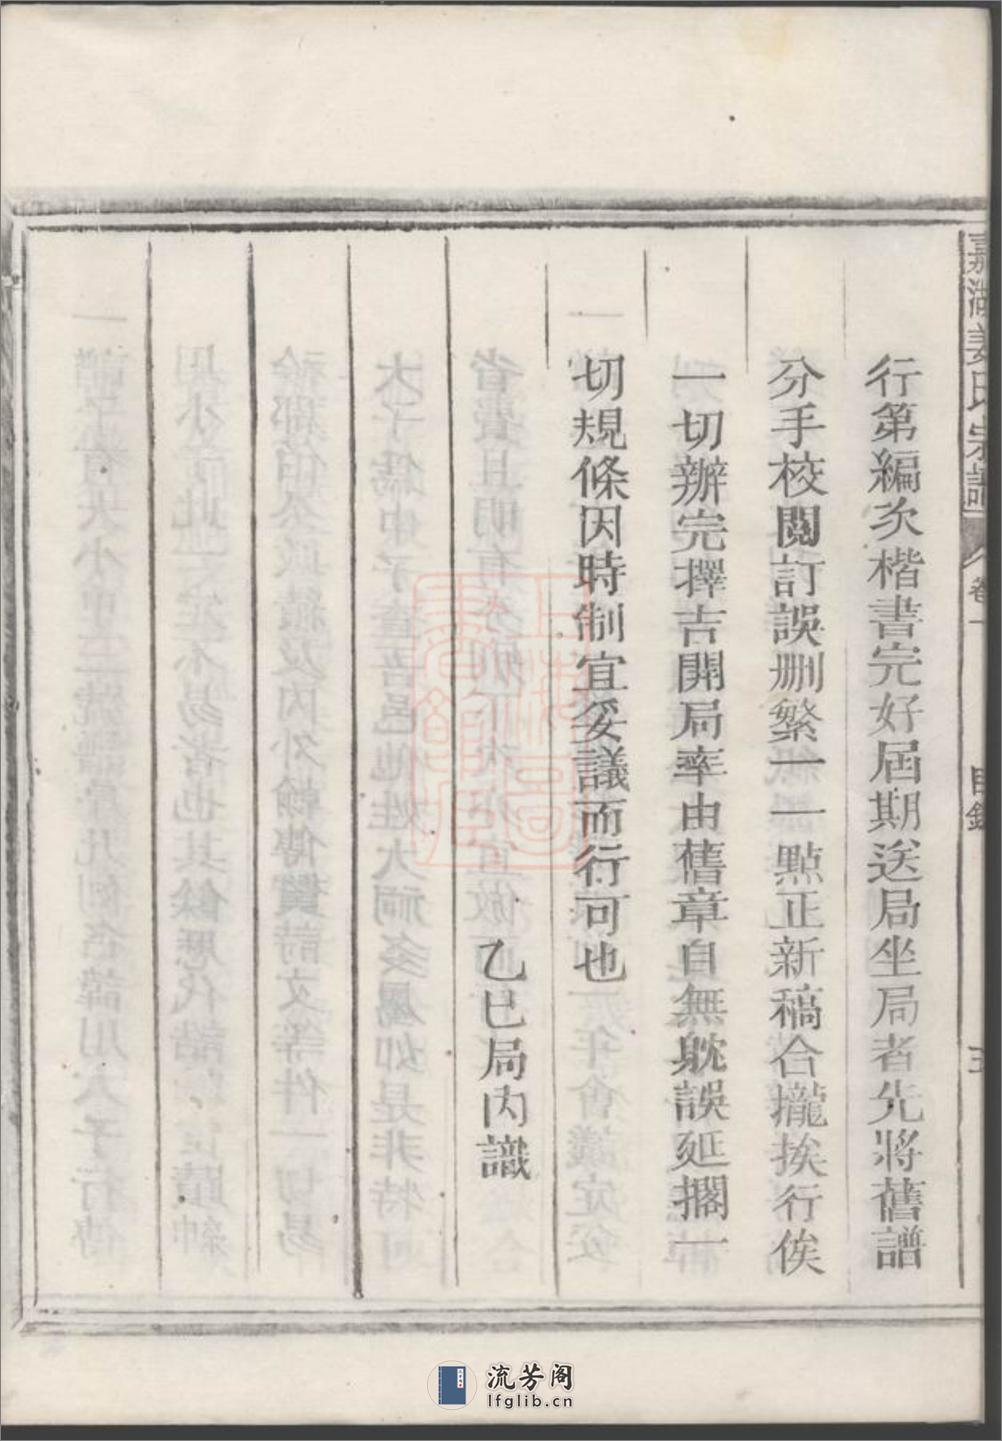 嘉湖姜氏宗譜
卷一
目錄
五
行第編次楷書完好屆期送局坐局者先將舊譜
分手校閱訂誤刪繁一一點正新稿合攏挨行俟
一切辦完擇吉開局率由舊章自無躭誤延擱一
切規條因時制宜妥議而行可也
乙巳局內識
流芳阁
lfglib.cn